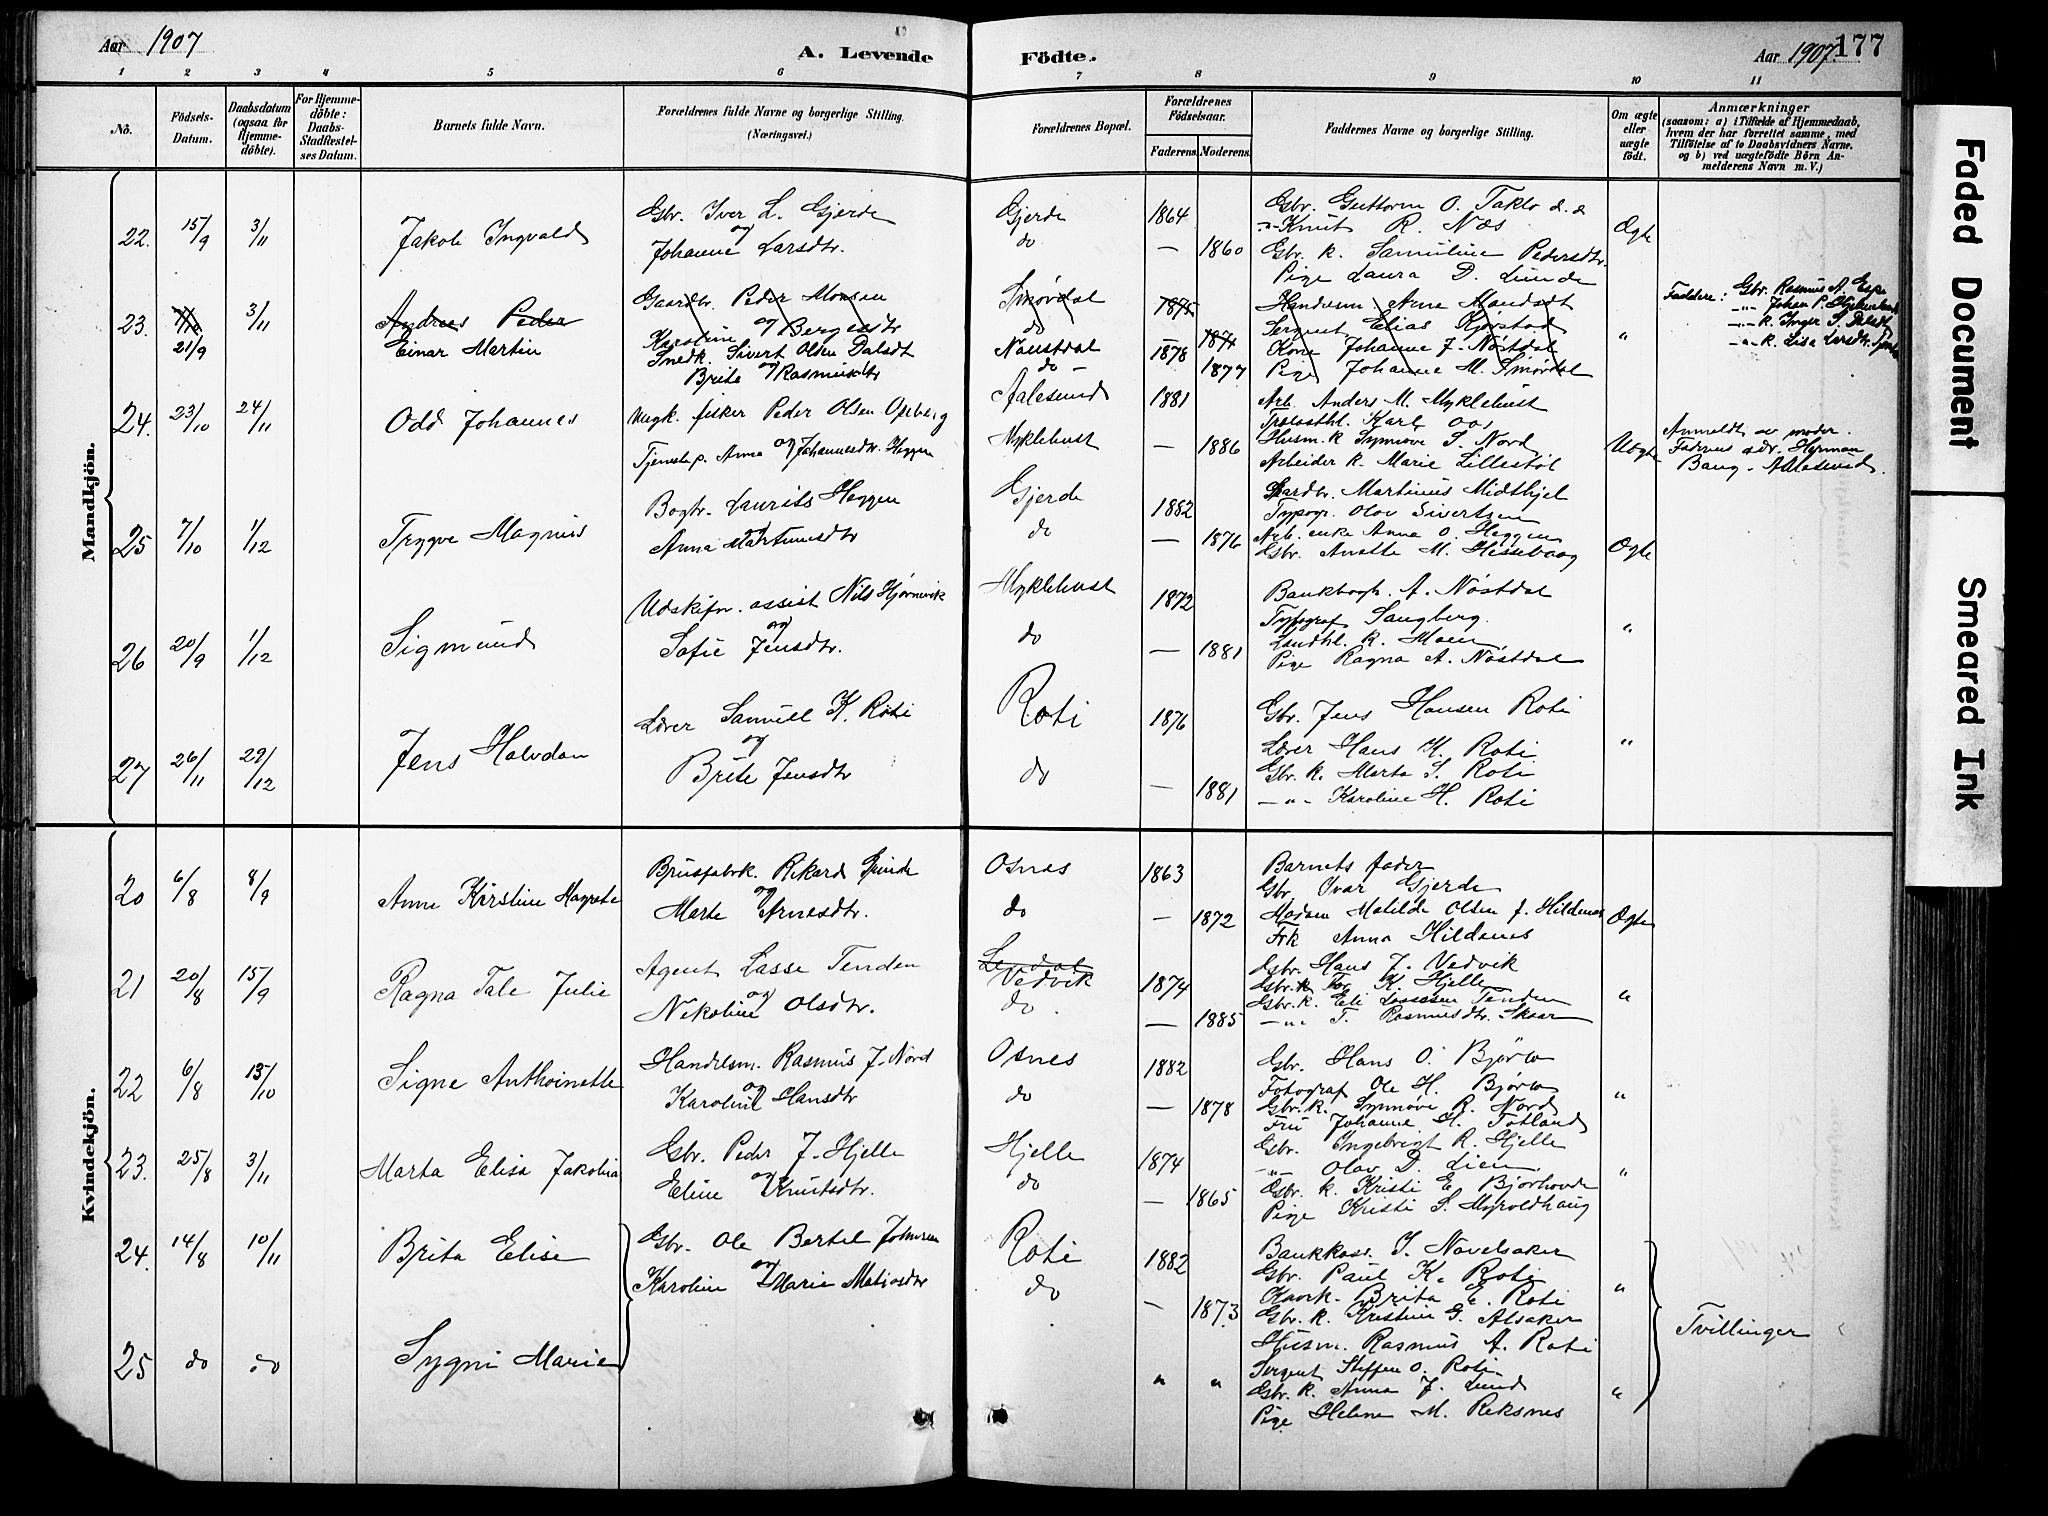 Aar 1907
A. Levende Födte.
Aar 1907. 177
1 2 3 4 5 6 7 8 9 10 11
No.
Födsels-Datum.
Daabsdatum (ogsaa for Hjemmedöbte).
For Hjemmedöbte: Daabs-Stadfæstelses Datum.
Barnets fulde Navn.
Forældrenes fulde Navne og borgerlige Stilling. (Næringsvei.)
Forældrenes Bopæl.
Forældrenes Födselsaar.
Faderens. Moderens.
Faddernes Navne og borgerlige Stilling.
Om ægte eller uægte födt.
Anmærkninger
(saasom: a) i Tilfælde af Hjemmedaab, hvem der har forrettet samme, med Tilföielse af to Daabsvidners Navne. og b) ved uægtefödte Börn Anmelderens Navn m. V.)
Mandkjön.
22. 15/9 3/11 Jakob Ingvald
Gbr. Iver L. Gjerde
og
Johanne Larsdtr.
Gjerde 1864
do — 1860
Gbr. Guttorm O. Taklo d. e
-"- Knut R. Nos
Gbr. k. Samuline Pedersdtr.
Pige Laura D. Lunde
Ægte
23. 21/9 3/11
Andreas Peder
Einar Martin
Gaardbr. Peder Monsen
og
Karoline Bergesdtr
Snedk. Sivert Olsen Dalsdt
Brite og Rasmusdtr
Smørdal 1875
do 1871
Naustdal 1878
do 1877
Handelsm Arne Mandsdt
Sergent Elias Kjørstad
Kone Johanne J. Nøstdal
Pige Johanne M. Smørdal
"
Faddere: Gbr. Rasmus A. Espe
-"- Johan P.
-"- k. Inger S. Dalsdt
-"- k. Lisa Larsdtr.
24. 23/10 24/11 Odd Johannes
Ungk. fisker Peder Olsen Opberg
og
Tjenestep. Anna Johannesdtr. Heggen
Aalesund 1881
Myklebust — 1886
Arb. Anders M. Myklebust
Karl Oos
Husm. k Synnøve S. Nord
Arbeider k. Marie Lillestøl
Uægte
Anmeldt av moder.
Faderens adr. Herman
Bang. Aalesund.
25 7/10 1/12 Trygve Magnus
Bogtr. Laurits Heggen
og
Anna Martinusdtr
Gjerde 1882
do — 1876
Gardbr. Martinus Midthjel
Typogr. Olov Sivertsen
Arb. enke Anna O. Heggen
Gbr. Anette M. Hessevaag
Ægte
26 20/9 1/12 Sigmund
Udskiftn. assist Nils Hjørnevik
og
Sofie Jensdtr.
Myklebust 1872
do — 1881
Bankbogh. A. Nøstdal
Typograf Sangberg.
Landhl. k. Moen
Pige Ragna A. Nøstdal
"
27 26/11 29/12 Jens Halvdan
Lærer Samuel K. Roti
og
Brite Jensdtr
Roti 1876
do — 1881
Gbr. Jens Hansen Roti
Lærer Hans K. Roti
Gbr. k. Marta S. Roti
—"— Karoline H. Roti
"
Kvindekjön.
20 6/8 8/9 Anne Kirstine Magrete
Brusfabrk. Rikard Grinde
og
Marte Arnesdtr.
Osnes 1863
do — 1872
Barnets fader
Gbr. Ivar Gjerde
Madam Matilde Olsen f. Hildenes
Frk Anna Hildenes
Ægte
21 20/8 15/9 Ragna Tale Julie
Agent Lasse Tenden
og
Nikoline Olsdtr.
Vedvik 1874
do. — 1885
Gbr. Hans J. Vedvik
Gbr. Tor K. Hjelle
Gbr. k. Eli Lassesen Tenden
—"— T. Rasmusdtr. Skaar
"
22 6/8 13/10 Signe Anthoinette
Handelsm. Rasmus J. Nord
og
Karoline Hansdtr
Osnes 1882
do — 1878
Gbr. Hans O. Bjørlo
Fotograf Ole H. Bjørlo
Gbr. k. Synnøve R. Nord
Fru Johanne H. Totland
"
23. 25/8 3/11 Marta Elisa Jakobina
Gbr. Peder J. Hjelle
og
Eline Knutsdtr.
Hjelle 1874
do — 1865
Gbr. Ingebrigt R. Hjelle
—"— Olav D. Lien
Gbr. k. Kristi E. Bjørhovde
Pige Kristi S. Myroldhaug
"
24. 14/8 10/11 Brita Elise
Gbr. Ole Bertel Johnsen
og
Karoline Marie Matiasdtr
Roti 1882
do — 1873
Bankkass. I. Navelsaker
Gbr. Paul K. Roti
Kaark. Brita E. Roti
Gbr. k. Kristine G. Alsaker
"
25 do do Sygni Marie
" "
Husm. Rasmus A. Roti
Sergent Steffen O. Roti
Gbr. k. Anna J. Lund
Pige Helene M. Reksnes
"
Tvillinger
Faded Document
Smeared Ink